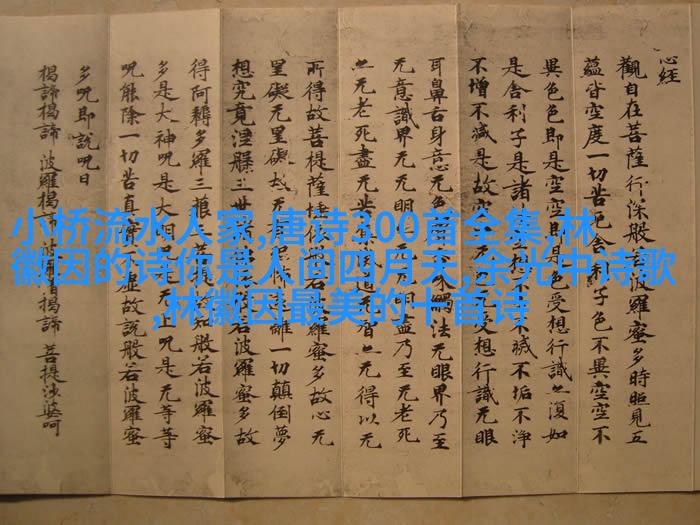 小桥流水人家,唐诗300首全集,林
徽因的诗你是人间四月天,余光中诗歌
,林徽因最美的十首诗
心经
觀自在菩薩行深般若波羅蜜多時照見五
蘊皆空度一切苦厄舍利子色不異空空不
異色色即是空空即是色受想行識亦復如
是舍利子是諸法空相不生不滅不垢不淨
不增不減是故空中无色无受想行識无眼
耳鼻舌身意无色聲香味觸法无眼界乃至
无意識界无无明亦无无明盡乃至无老死
亦无老死盡无苦集滅道无智亦无得以无
所得故菩提薩埵依般若波羅蜜多故心无
罣礙无罣礙故无有恐怖遠離一切顛倒夢
想究竟涅槃三世諸佛依般若波羅蜜多故
得阿耨多羅三藐三菩提故知般若波羅蜜
多是大神呪是大明呪是无上呪是无等等
呪能除一切苦真實不虛故說般若波羅蜜
多呪即說呪曰
揭諦揭諦 波羅揭諦 波羅僧揭諦 菩提娑婆呵